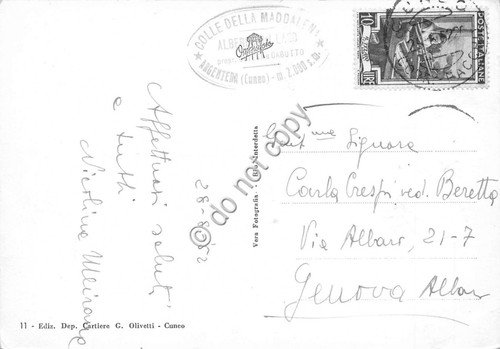 COLLE DELLA MADDALENA
ARGENTERA (Cuneo) - m. 2.000 s.m.
POSTE ITALIANE
10
LIRE
Affettuosi saluti
a tutti
Nicolina
28-8-52
Vera Fotografia - Rip. Interdetta
do not copy
Gent.ma Signora
Carla Crespi ved. Beretta
Via Albaro, 21-7
Genova Albaro
11 - Ediz. Dep. Cartiere G. Olivetti - Cuneo